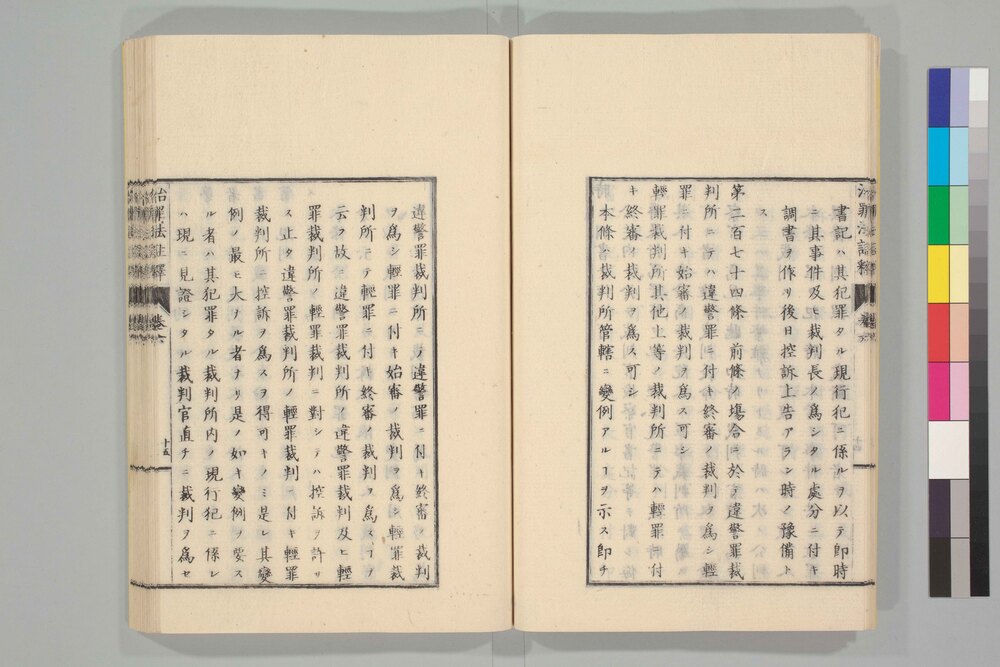 書記ハ其犯罪タル現行犯ニ係ルヲ以テ即時
ニ其事件及ヒ裁判長ノ爲シタル處分ニ付キ
調書ヲ作リ後日控訴上告アラン時ノ豫備ト
ス
第二百七十四條 前條ノ塲合ニ於テ違警罪裁
判所ニテハ違警罪ニ付キ終審ノ裁判ヲ爲シ輕
罪ニ付キ始審ノ裁判ヲ爲ス可シ
輕罪裁判所其他上等ノ裁判所ニテハ輕罪ニ付
キ終審ノ裁判ヲ爲ス可シ
本條ハ裁判所管轄ニ變例アルヿヲ示ス即チ
違警罪裁判所ニテ違警罪ニ付キ終審ノ裁判
ヲ爲シ輕罪ニ付キ始審ノ裁判ヲ爲シ輕罪裁
判所ニテ輕罪ニ付キ終審ノ裁判ヲ爲スヿヲ
云フ故ニ違警罪裁判所ノ違警罪裁判及ヒ輕
罪裁判所ノ輕罪裁判ニ對シテハ控訴ヲ許サ
ス止タ違警罪裁判所ノ輕罪裁判ニ付キ輕罪
裁判所ニ控訴ヲ爲スヲ得可キノミ是レ其變
例ノ最モ大ナル者ナリ是ノ如キ變例ヲ要ス
ル者ハ其犯罪タル裁判所内ノ現行犯ニ係レ
ハ現ニ見證シタル裁判官直チニ裁判ヲ爲セ
治罪法註釋 卷六
十五